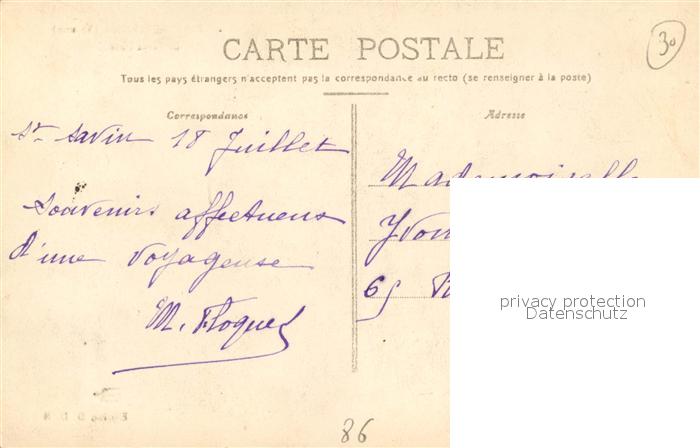 30
CARTE POSTALE
Tous les pays étrangers n'acceptent pas la correspondance au recto (se renseigner à la poste)
Correspondance
Adresse
St Savin 18 Juillet
Souvenirs affectueux
d'une voyageuse
M. Floquet
Mademoiselle
Yvon
65
privacy protection
Datenschutz
86